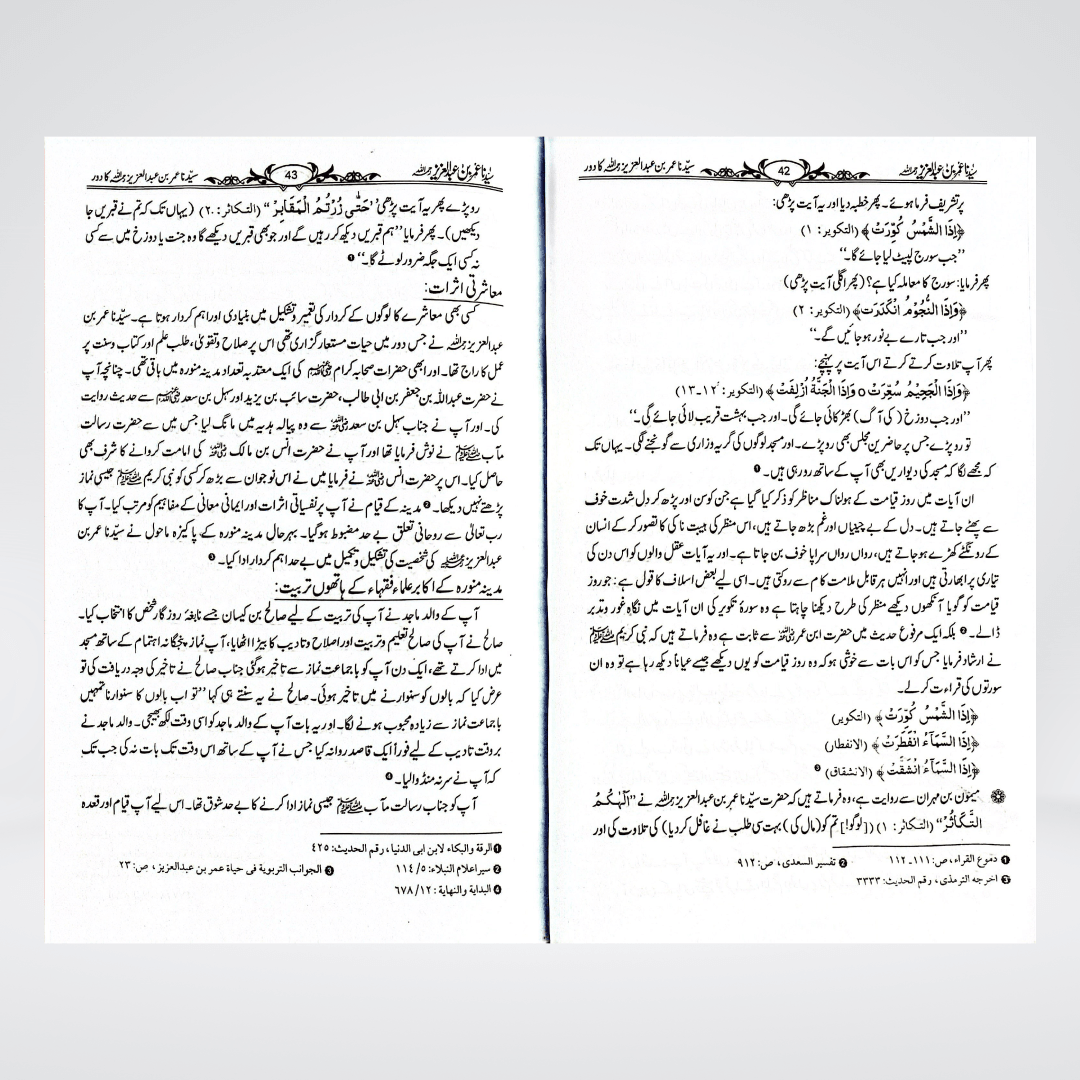 سیدنا عمر بن عبدالعزیز رحمہ اللہ
42
سیّدنا عمر بن عبدالعزیز رحمہ اللہ کا دور
پر تشریف فرما ہوئے۔ پھر خطبہ دیا اور یہ آیت پڑھی:
﴿إِذَا الشَّمْسُ كُوِّرَتْ﴾ (التکویر: ۱)
’’جب سورج لپیٹ لیا جائے گا۔‘‘
پھر فرمایا: سورج کا معاملہ کیا ہے؟ (پھر اگلی آیت پڑھی)
﴿وَإِذَا النُّجُوْمُ انْكَدَرَتْ﴾ (التکویر: ۲)
’’اور جب تارے بے نور ہو جائیں گے۔‘‘
پھر آپ تلاوت کرتے کرتے اس آیت پر پہنچے:
﴿وَإِذَا الْجَحِيْمُ سُعِّرَتْ ٥ وَإِذَا الْجَنَّةُ أُزْلِفَتْ﴾ (التکویر: ۱۲۔۱۳)
’’اور جب دوزخ (کی آگ) بھڑکائی جائے گی۔ اور جب بہشت قریب لائی جائے گی۔‘‘
تو رو پڑے جس پر حاضرین مجلس بھی رو پڑے۔ اور مسجد لوگوں کی گریہ وزاری سے گونجنے لگی۔ یہاں تک
کہ مجھے لگا کہ مسجد کی دیواریں بھی آپ کے ساتھ رو رہی ہیں۔ ❶
ان آیات میں روز قیامت کے ہولناک مناظر کو ذکر کیا گیا ہے جن کو سن اور پڑھ کر دل شدت خوف
سے پھٹے جاتے ہیں۔ دل کے بے چینیاں اور غم بڑھ جاتے ہیں، اس منظر کی ہیبت ناکی کا تصور کر کے انسان
کے رونگٹے کھڑے ہو جاتے ہیں، رواں رواں سراپا خوف بن جاتا ہے۔ اور یہ آیات عقل والوں کو اس دن کی
تیاری پر ابھارتی ہیں اور انہیں ہر قابل ملامت کام سے روکتی ہیں۔ اسی لیے بعض اسلاف کا قول ہے: جو روز
قیامت کو گویا آنکھوں دیکھے منظر کی طرح دیکھنا چاہتا ہے وہ سورۂ تکویر کی ان آیات میں نگاہِ غور وتدبر
ڈالے۔ ❷ بلکہ ایک مرفوع حدیث میں حضرت ابن عمر رضی اللہ عنہ سے ثابت ہے وہ فرماتے ہیں کہ نبی کریم ﷺ
نے ارشاد فرمایا جس کو اس بات سے خوشی ہو کہ وہ روز قیامت کو یوں دیکھے جیسے عیاناً دیکھ رہا ہے تو وہ ان
سورتوں کی قراءت کرلے۔
﴿إِذَا الشَّمْسُ كُوِّرَتْ﴾ (التکویر)
﴿إِذَا السَّمَآءُ انْفَطَرَتْ﴾ (الانفطار)
﴿إِذَا السَّمَآءُ انْشَقَّتْ﴾ (الانشقاق) ❸
میمون بن مہران سے روایت ہے، وہ فرماتے ہیں کہ حضرت سیّدنا عمر بن عبدالعزیز رحمہ اللہ نے ’’أَلْهٰىكُمُ
التَّكَاثُرُ‘‘ (التکاثر: ۱) ([لوگو!] تم کو (مال کی) بہت سی طلب نے غافل کر دیا) کی تلاوت کی اور
❶ دموع القراء، ص: ۱۱۱۔۱۱۲ ❷ تفسیر السعدی، ص: ۹۱۲
❸ اخرجه الترمذی، رقم الحدیث: ۳۳۳۳
سیدنا عمر بن عبدالعزیز رحمہ اللہ
43
سیّدنا عمر بن عبدالعزیز رحمہ اللہ کا دور
رو پڑے پھر یہ آیت پڑھی ’’حَتّٰى زُرْتُمُ الْمَقَابِرَ‘‘ (التکاثر: ۲) (یہاں تک کہ تم نے قبریں جا
دیکھیں)۔ پھر فرمایا ’’ہم قبریں دیکھ کر رہیں گے اور جو بھی قبریں دیکھے گا وہ جنت یا دوزخ میں سے کسی
نہ کسی ایک جگہ ضرور لوٹے گا۔‘‘ ❶
معاشرتی اثرات:
کسی بھی معاشرے کا لوگوں کے کردار کی تعمیر وتشکیل میں بنیادی اور اہم کردار ہوتا ہے۔ سیّدنا عمر بن
عبدالعزیز رحمہ اللہ نے جس دور میں حیات مستعار گزاری تھی اس پر صلاح وتقویٰ، طلب علم اور کتاب وسنت پر
عمل کا راج تھا۔ اور ابھی حضرات صحابہ کرام رضی اللہ عنہم کی ایک معتد بہ تعداد مدینہ منورہ میں باقی تھی۔ چنانچہ آپ
نے حضرت عبداللہ بن جعفر بن ابی طالب، حضرت سائب بن یزید اور سہل بن سعد رضی اللہ عنہم سے حدیث روایت
کی۔ اور آپ نے جناب سہل بن سعد رضی اللہ عنہ سے وہ پیالہ ہدیہ میں مانگ لیا جس میں سے حضرت رسالت
مآب ﷺ نے نوش فرمایا تھا اور آپ نے حضرت انس بن مالک رضی اللہ عنہ کی امامت کروانے کا شرف بھی
حاصل کیا۔ اس پر حضرت انس رضی اللہ عنہ نے فرمایا میں نے اس نوجوان سے بڑھ کر کسی کو نبی کریم ﷺ جیسی نماز
پڑھتے نہیں دیکھا۔ ❷ مدینہ کے قیام نے آپ پر نفسیاتی اثرات اور ایمانی معانی کے مفاہیم کو مرتب کیا۔ آپ کا
رب تعالیٰ سے روحانی تعلق بے حد مضبوط ہوگیا۔ بہرحال مدینہ منورہ کے پاکیزہ ماحول نے سیّدنا عمر بن
عبدالعزیز رحمہ اللہ کی شخصیت کی تشکیل وتکمیل میں بے حد اہم کردار ادا کیا۔ ❸
مدینہ منورہ کے اکابر علماء وفقہاء کے ہاتھوں تربیت:
آپ کے والد ماجد نے آپ کی تربیت کے لیے صالح بن کیسان جیسے نابغۂ روزگار شخص کا انتخاب کیا۔
صالح نے آپ کی صالح تعلیم وتربیت اور اصلاح وتادیب کا بیڑا اٹھایا، آپ نماز پنجگانہ اہتمام کے ساتھ مسجد
میں ادا کرتے تھے، ایک دن آپ کو باجماعت نماز سے تاخیر ہوگئی جناب صالح نے تاخیر کی وجہ دریافت کی تو
عرض کیا کہ بالوں کو سنوارنے میں تاخیر ہوئی۔ صالح نے یہ سنتے ہی کہا ’’تو اب بالوں کا سنوارنا تمہیں
باجماعت نماز سے زیادہ محبوب ہونے لگا۔ اور یہ بات آپ کے والد ماجد کو اسی وقت لکھ بھیجی۔ والد ماجد نے
بروقت تادیب کے لیے فوراً ایک قاصد روانہ کیا جس نے آپ کے ساتھ اس وقت تک بات نہ کی جب تک
کہ آپ نے سر نہ منڈوالیا۔ ❹
آپ کو جناب رسالت مآب ﷺ جیسی نماز ادا کرنے کا بے حد شوق تھا۔ اس لیے آپ قیام اور قعدہ
❶ الرقة والبکاء لابن ابی الدنیا، رقم الحدیث: ۴۲۵
❷ سیر اعلام النبلاء: ۵/۱۱۴ ❸ الجوانب التربویة فی حیاة عمر بن عبدالعزیز، ص: ۲۳
❹ البدایة والنهایة: ۱۲/۶۷۸